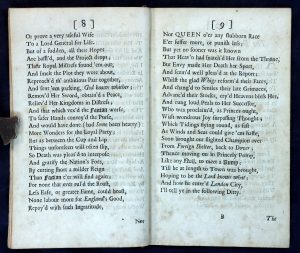 [ 8 ]
Or prove a very useful Wife
To a Lord General for Life.
But of a sudden, all their Hopes
Are baffl'd, and the Project drops;
Their Royal Mistress found 'em out,
And smelt the Plot they were about,
Reproach'd th' ambitious Pair together,
And sent 'em packing, God knows whither;
Remov'd Her Sword, obtain'd a Peace,
Reliev'd Her Kingdoms in Distress;
And that which vex'd the Faction worse,
To safer Hands convey'd the Purse,
And would have done (had Some been hearty)
More Wonders for the Loyal Party:
But as between the Cup and Lip
Things unforeseen will often slip,
So Death was pleas'd to interpose
And gratify the Nation's Foes,
By cutting short a milder Reign
Than Faction e'er will find again:
For none that ever rul'd the Roast,
Less Ease, or greater Fame, could boast,
None labour more for England's Good,
Repay'd with such Ingratitude,
Nor
[ 9 ]
Nor QUEEN o'er any stubborn Race
E'er suffer more, or punish less;
But yet no sooner was it known
That Heav'n had summon'd Her from the Throne,
But Envy made Her Death her Sport,
And seem'd well pleas'd at the Report:
Whilst the glad Whigs retrim'd their Faces,
And chang'd to Smiles their late Grimaces,
Advanc'd their Stocks, cry'd Heavens bless Her,
And rung loud Peals to Her Successor,
Who was proclaim'd, as Princes ought,
With wondrous Joy surpassing Thought;
Which Tidings flying round, as fast
As Winds and Seas could give 'em haste,
Soon brought our slighted Champion over
From Foreign Shelter, back to Dover;
Thence moving on in Princely Pomp,
Like any Flail, to meet a Rump;
Till he at length to Town was brought,
Hoping to be the Lord knows what;
And how he enter'd London City,
I'll tell ye in the following Ditty.
B
The